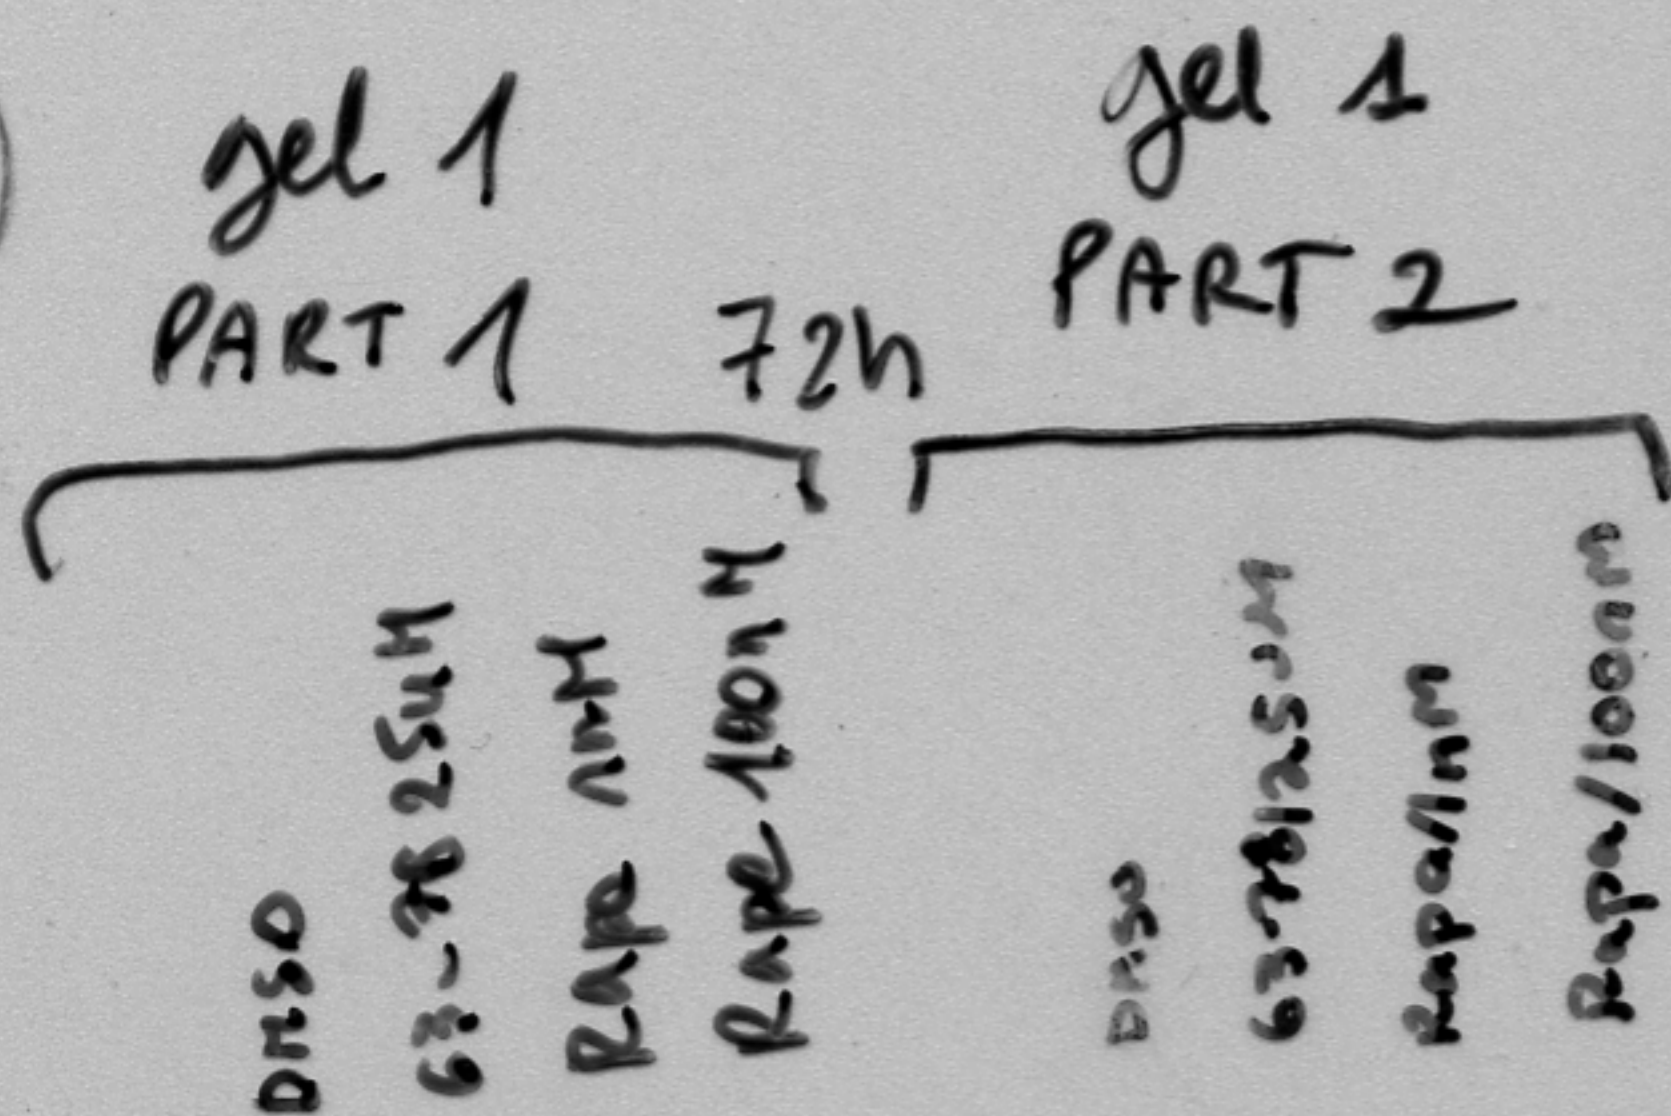 gel 1
PART 1
72h
gel 1
PART 2
DMSO
63-78 25uM
Rapa 1nM
Rapa 100nM
DMSO
63-78/25uM
Rapa/1nM
Rapa/100nM